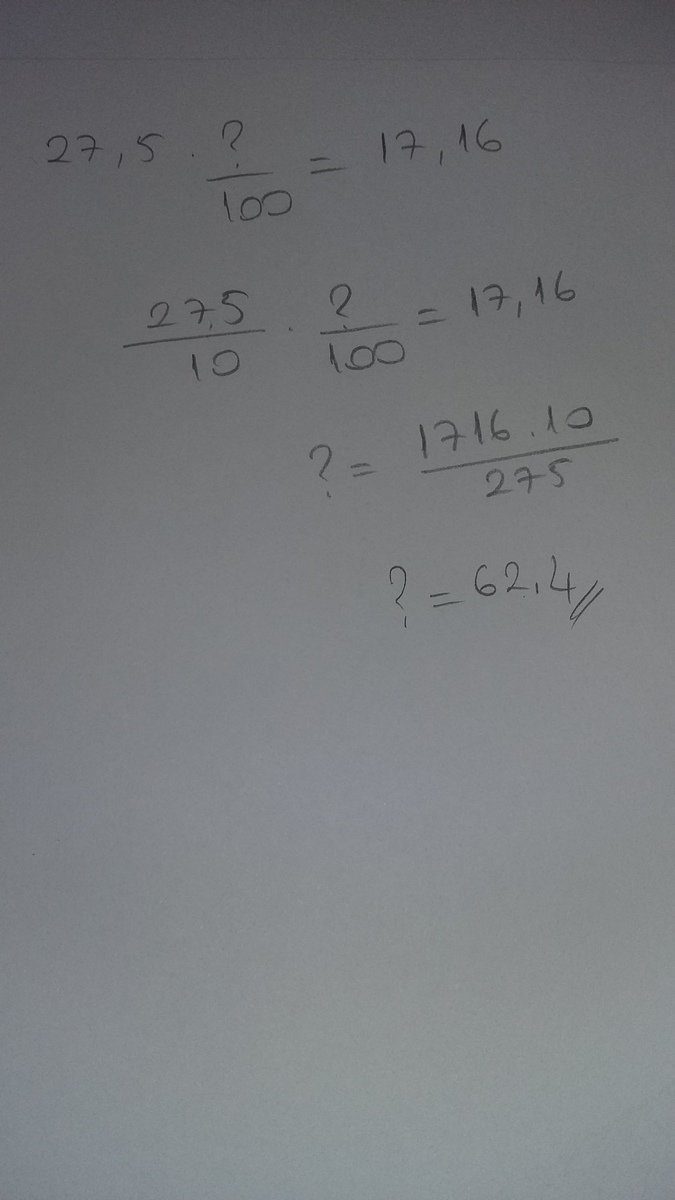 27,5 . ?/100 = 17,16
275/10 . ?/100 = 17,16
? = 1716.10/275
? = 62,4//